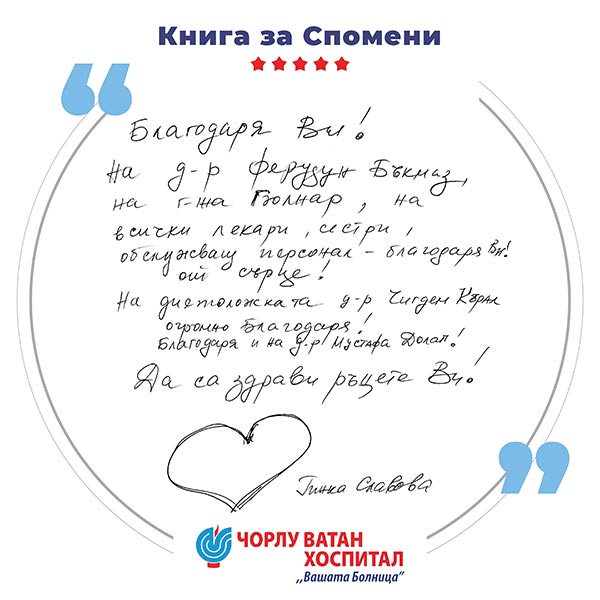 Книга за Спомени
Благодаря Ви!
На д-р Ферудун Бъкмаз,
на г-жа Гюлнар, на
всички лекари, сестри,
обслужващ персонал - благодаря Ви!
от сърце!
На диетоложката д-р Чигдем Къран
огромно благодаря!
Благодаря и на д-р Мустафа Долап!
Да са здрави ръцете Ви!
Гинка Славова
ЧОРЛУ ВАТАН
ХОСПИТАЛ
,,Вашата Болница"